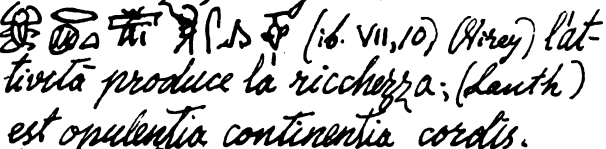 (ib. VII, 10) (Virey) l'at-
tività produce la ricchezza; (Lauth)
est opulentia continentia cordis.